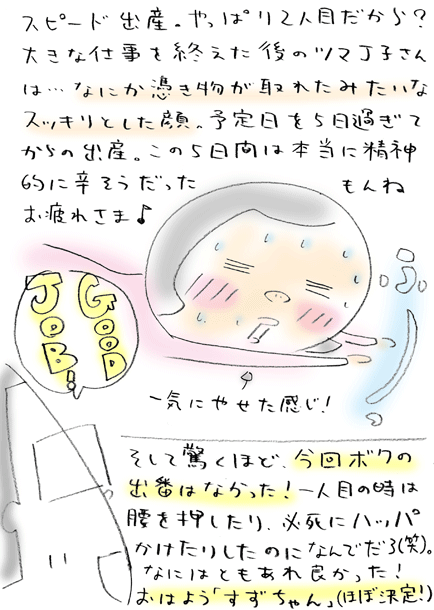 スピード出産。やっぱり2人目だから？
大きな仕事を終えた後のツマ丁子さん
は…なにか憑き物が取れたみたいな
スッキリとした顔。予定日を5日過ぎて
からの出産。この5日間は本当に精神
的に辛そうだった
もんね
お疲れさま♪
ふぅ
GOOD
JOB!!
一気にやせた感じ！
そして驚くほど、今回ボクの
出番はなかった！一人目の時は
腰を押したり、必死にハッパ
かけたりしたのになんでだろ(笑)。
なにはともあれ良かった！
おはよう「すずちゃん」(ほぼ決定!)